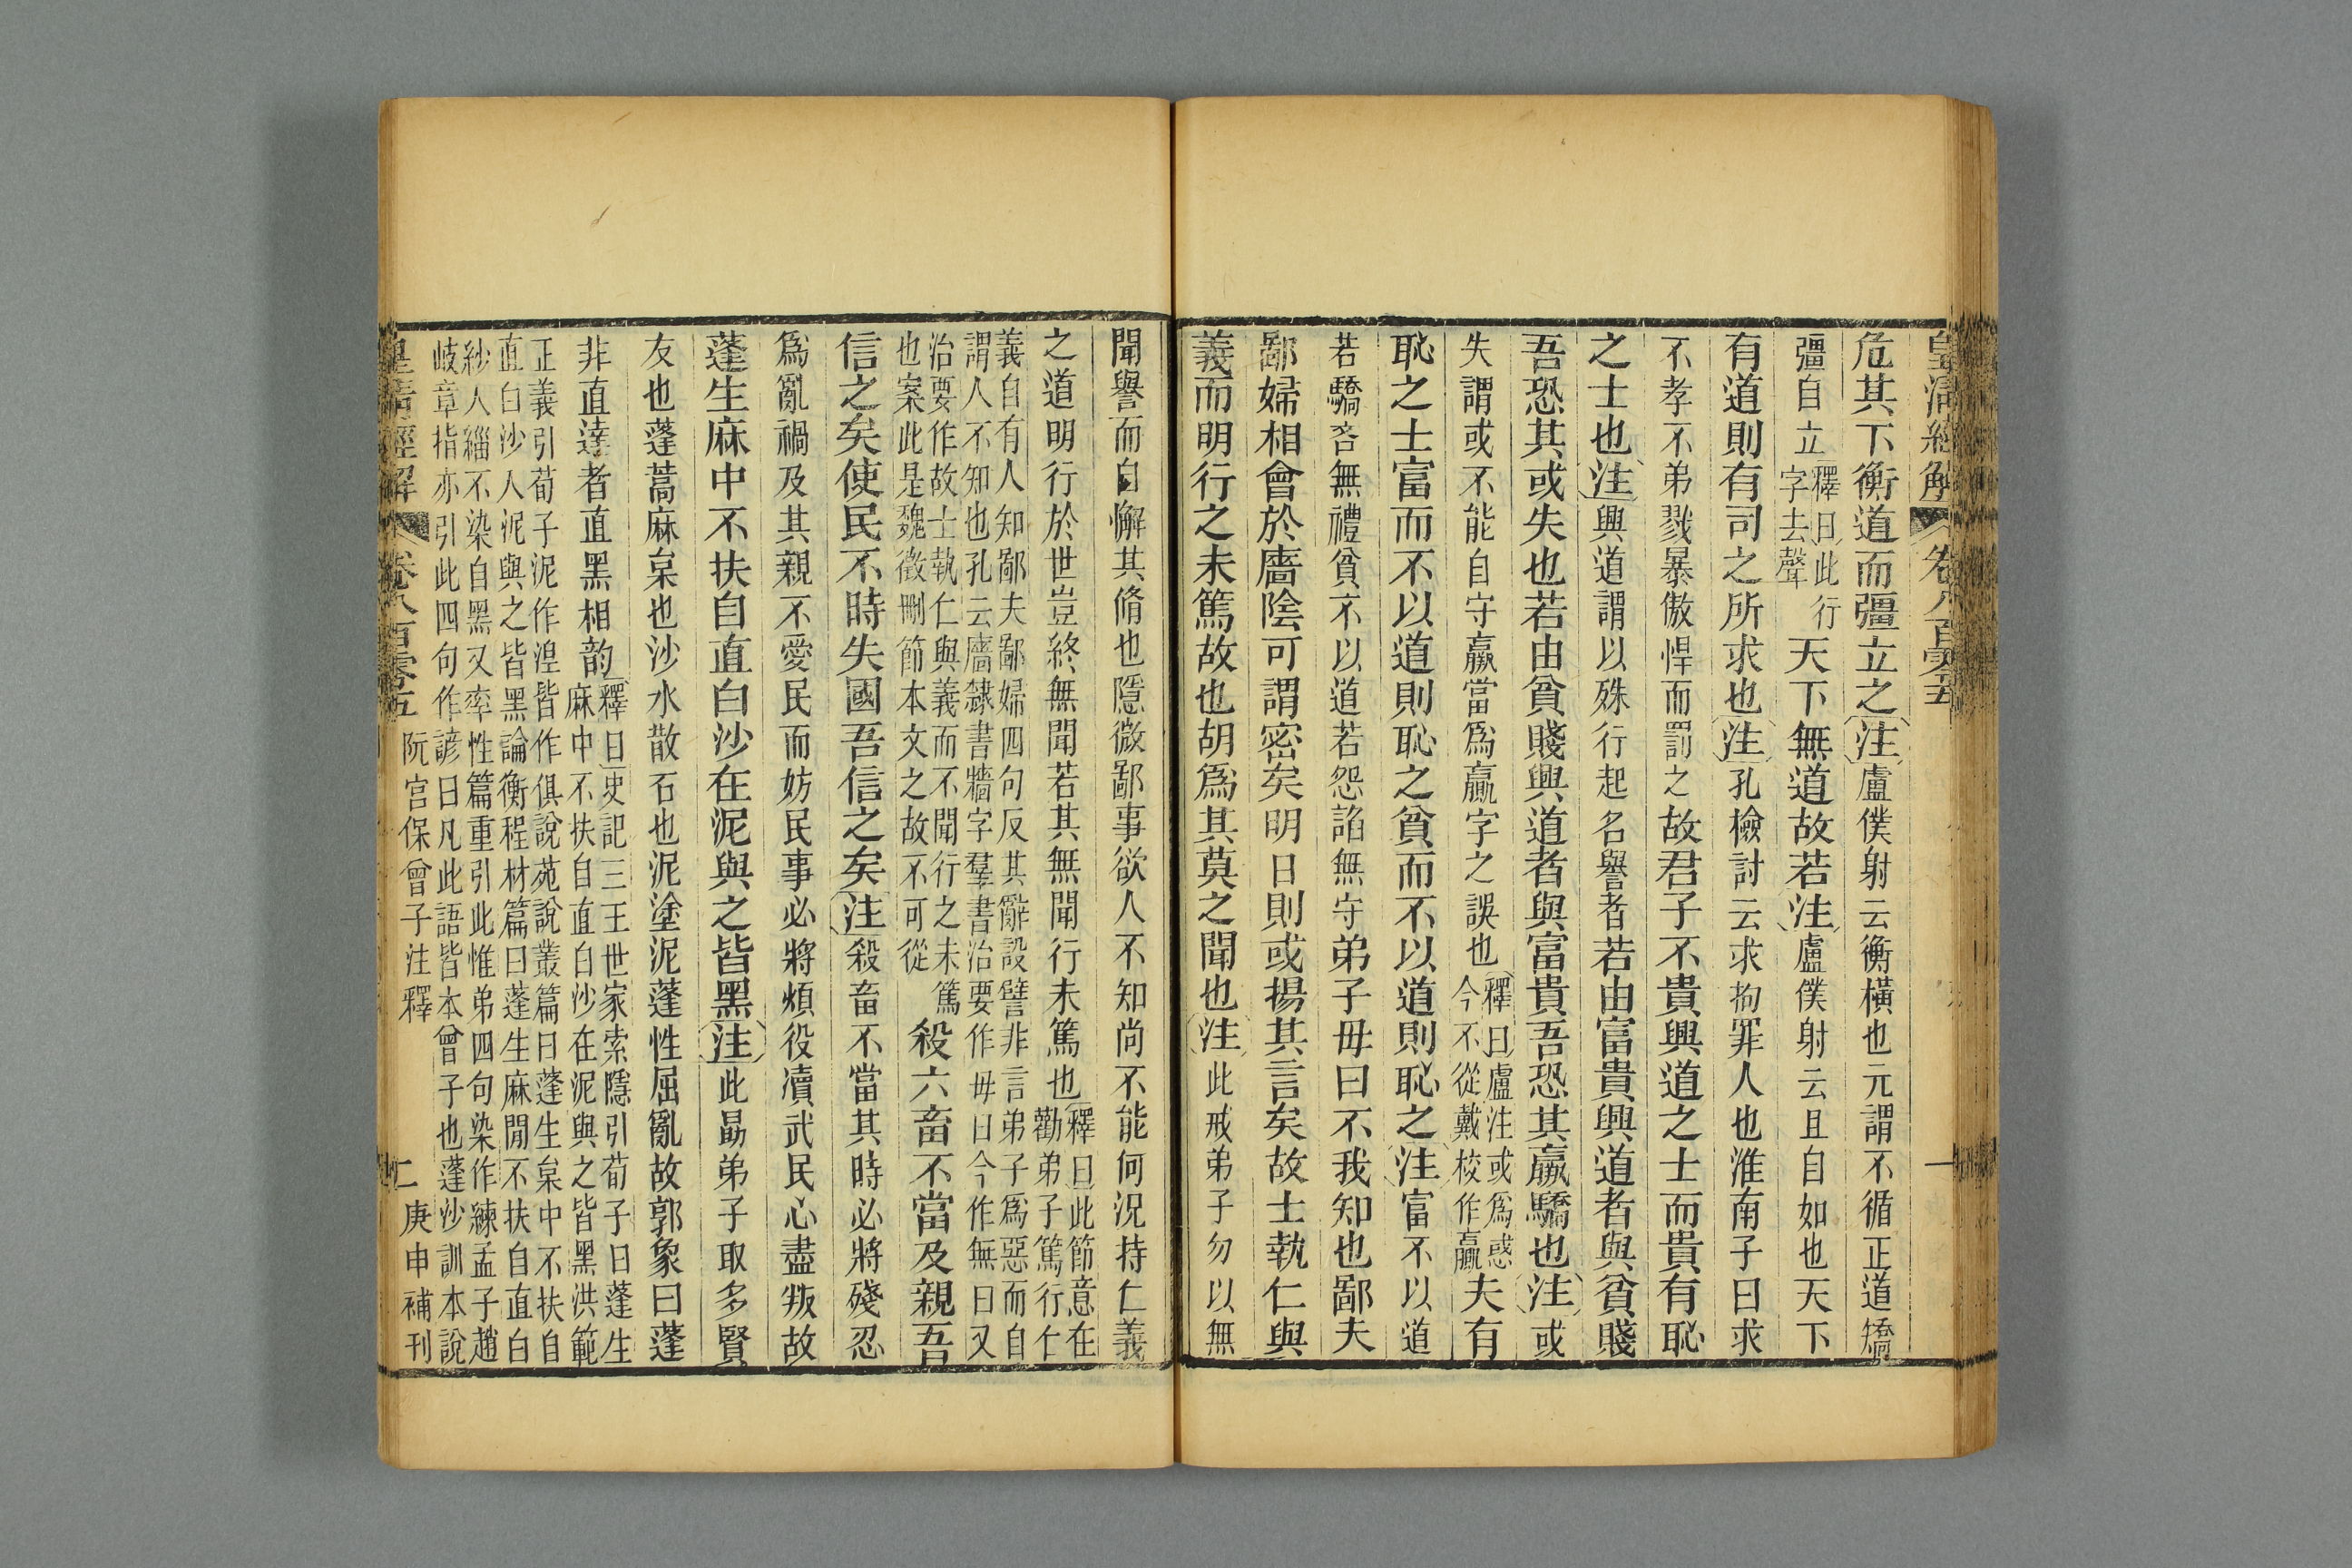 皇清經解 卷八百零五 一
危其下衡道而彊立之注盧僕射云衡橫也元謂不循正道矯
彊自立釋曰此行字去聲天下無道故若注盧僕射云且自如也天下
有道則有司之所求也注孔檢討云求拘罪人也淮南子曰求
不孝不弟戮暴傲悍而罰之故君子不貴興道之士而貴有恥
之士也注興道謂以殊行起名譽者若由富貴興道者與貧賤
吾恐其或失也若由貧賤興道者與富貴吾恐其贏驕也注或
失謂或不能自守贏當爲贏字之誤也釋曰盧注或爲惑今不從戴校作贏夫有
恥之士富而不以道則恥之貧而不以道則恥之注富不以道
若驕吝無禮貧不以道若怨諂無守弟子毋曰不我知也鄙夫
鄙婦相會於廧陰可謂密矣明日則或揚其言矣故士執仁與
義而明行之未篤故也胡爲其莫之聞也注此戒弟子勿以無
聞譽而自懈其脩也隱微鄙事欲人不知尚不能何況持仁義
之道明行於世豈終無聞若其無聞行未篤也釋曰此節意在勸弟子篤行仁
義自有人知鄙夫鄙婦四句反其辭設譬非言弟子爲惡而自
謂人不知也孔云廧隸書牆字羣書治要作毋曰今作無曰又
治要作故士執仁與義而不聞行之未篤
也案此是魏徵刪節本文之故不可從殺六畜不當及親吾
信之矣使民不時失國吾信之矣注殺畜不當其時必將殘忍
爲亂禍及其親不愛民而妨民事必將煩役凟武民心盡叛故
蓬生麻中不扶自直白沙在泥與之皆黑注此勗弟子取多賢
友也蓬蒿麻枲也沙水散石也泥塗泥蓬性屈亂故郭象曰蓬
非直達者直黑相韵釋曰史記三王世家索隱引荀子曰蓬生
麻中不扶自直白沙在泥與之皆黑洪範
正義引荀子泥作湼皆作俱說苑說叢篇曰蓬生枲中不扶自
直白沙人泥與之皆黑論衡程材篇曰蓬生麻閒不扶自直白
紗人緇不染自黑又率性篇重引此惟弟四句染作練孟子趙
岐章指亦引此四句作諺曰凡此語皆本曾子也蓬沙訓本說
皇清經解 卷八百零五 阮宮保曾子注釋 二 庚申補刊